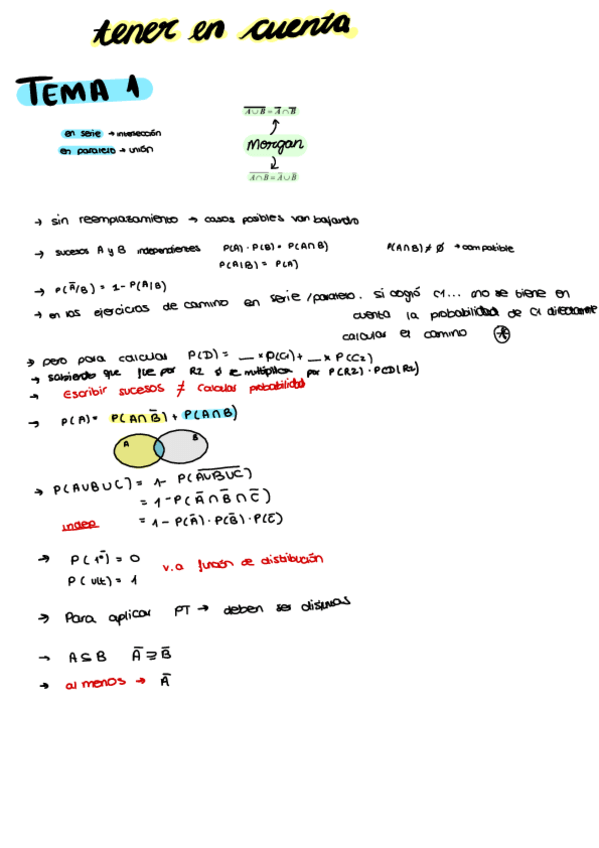 tener en cuenta
TEMA 1
en serie → intersección
en paralelo → unión
A∪B̅ = A̅ ∩ B̅
Morgan
A∩B̅ = A̅ ∪ B̅
→ sin reemplazamiento → casos posibles van bajando
→ sucesos A y B independientes P(A) · P(B) = P(A∩B) P(A∩B) ≠ ∅ → compatible
P(A|B) = P(A)
→ P(A̅/B) = 1 - P(A|B)
→ en los ejercicios de camino en serie / paralelo. si cogió C1... no se tiene en
cuenta la probabilidad de C1 directamente
calcular el camino ⊛
→ pero para calcular P(D) = __ × P(C1) + __ × P(C2)
→ sabiendo que fue por R2 se multiplica por P(R2) · P(D|R2)
→ Escribir sucesos ≠ calcular probabilidad
→ P(A) = P(A∩B̅) + P(A∩B)
A B
→ P(A∪B∪C) = 1 - P(A̅∪̅B̅∪̅C̅)
= 1 - P(A̅ ∩ B̅ ∩ C̅)
indep = 1 - P(A̅) · P(B̅) · P(C̅)
→ P(1º) = 0
P(ult) = 1
v.a función de distribución
→ Para aplicar PT → deben ser disjuntas
→ A ⊆ B A̅ ⊇ B̅
→ al menos → A̅